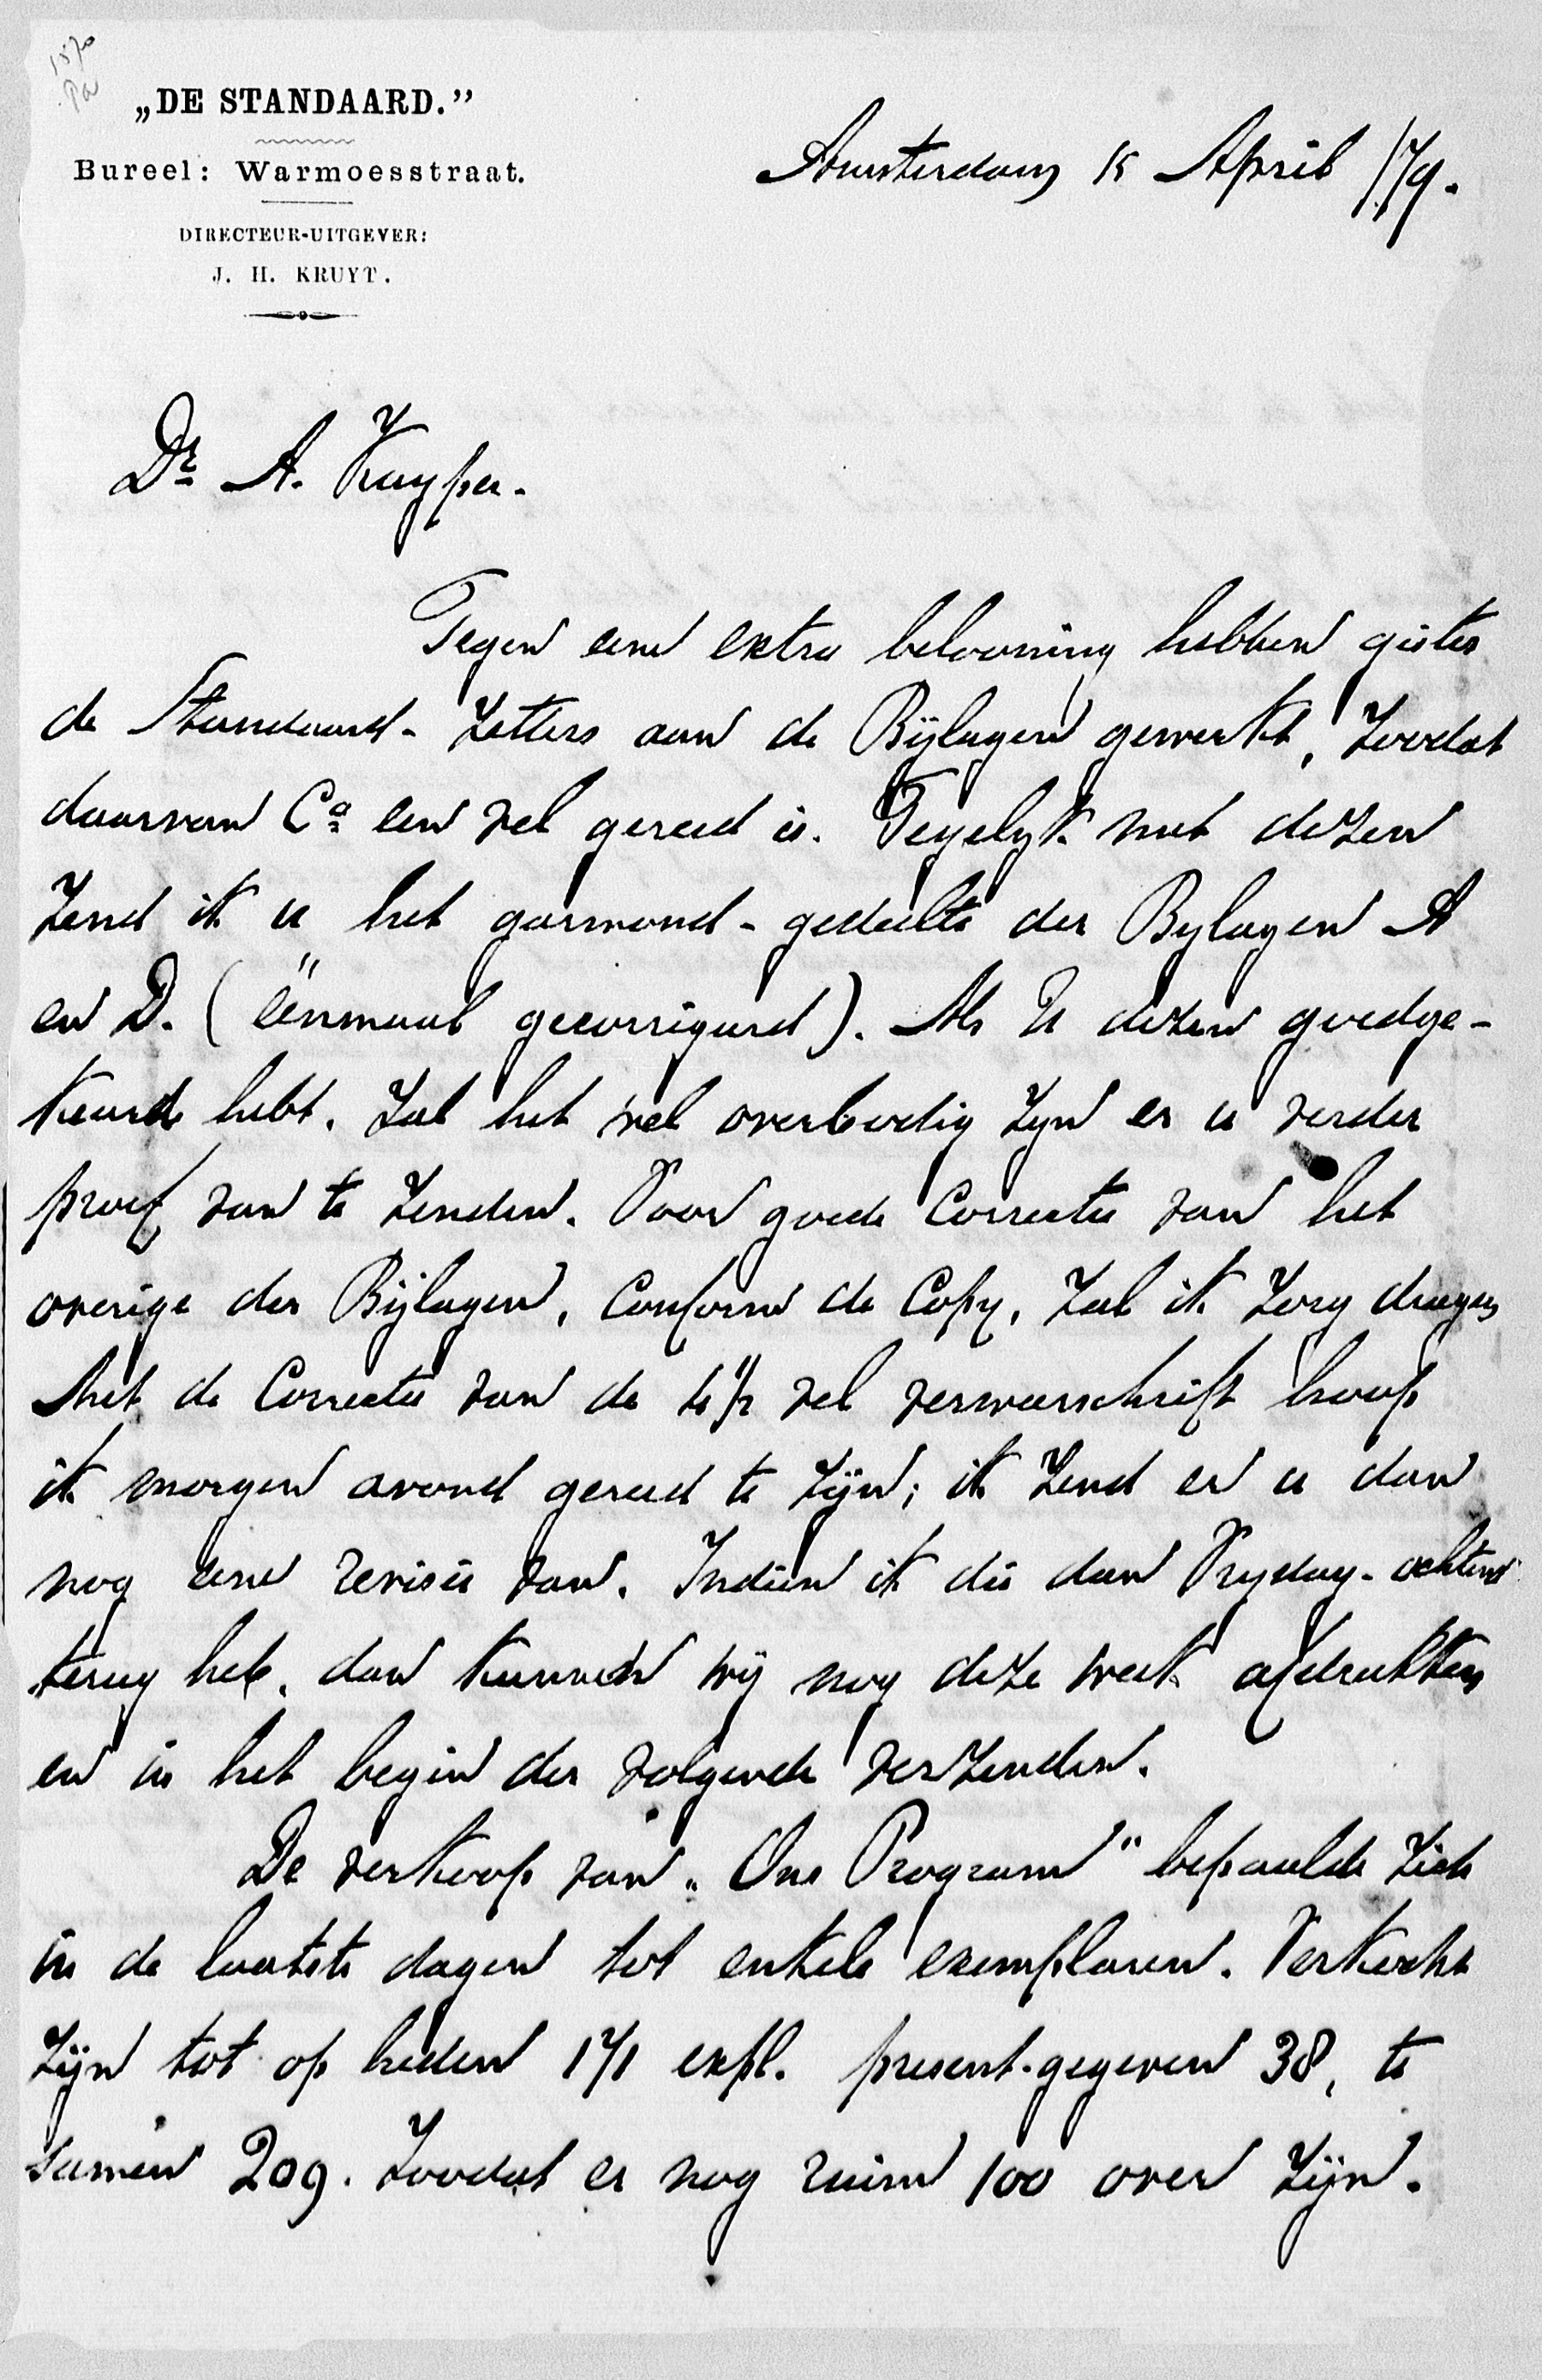 „DE STANDAARD.”
Bureel: Warmoesstraat.
DIRECTEUR-UITGEVER:
J. H. KRUYT.
Amsterdam 15 April /79.
Dr A. Kuyper.
Tegen eene extra belooning hebben gister
de Standaard-Zetters aan de Bijlagen gewerkt, Zoodat
daarvan Ca een vel gereed is. Tegelyk met dezen
Zend ik u het garmond-gedeelte der Bylagen A
en D. (éénmaal gecorrigeerd). Als U dezen goedge-
keurd hebt, Zal het wel overbodig Zyn er u verder
proef van te Zenden. Voor goede Correctie van het
overige der Bijlagen, Conform de Copy, Zal ik Zorg dragen
Met de Correctie van de vel verweerschrift hoop
ik morgen avond gereed te Zijn; ik Zend er u dan
nog eene revisie van. Indien ik die dan Vrydag-ochtend
terug heb, dan kunnen wij nog deze week afdrukken
en in het begin der volgende verzenden.
De verkoop van „Ons Program” bepaalde Zich
in de laatste dagen tot enkele exemplaren. Verkocht
Zijn tot op heden 171 expl. present-gegeven 38, te
samen 209. Zoodat er nog ruim 100 over Zijn.